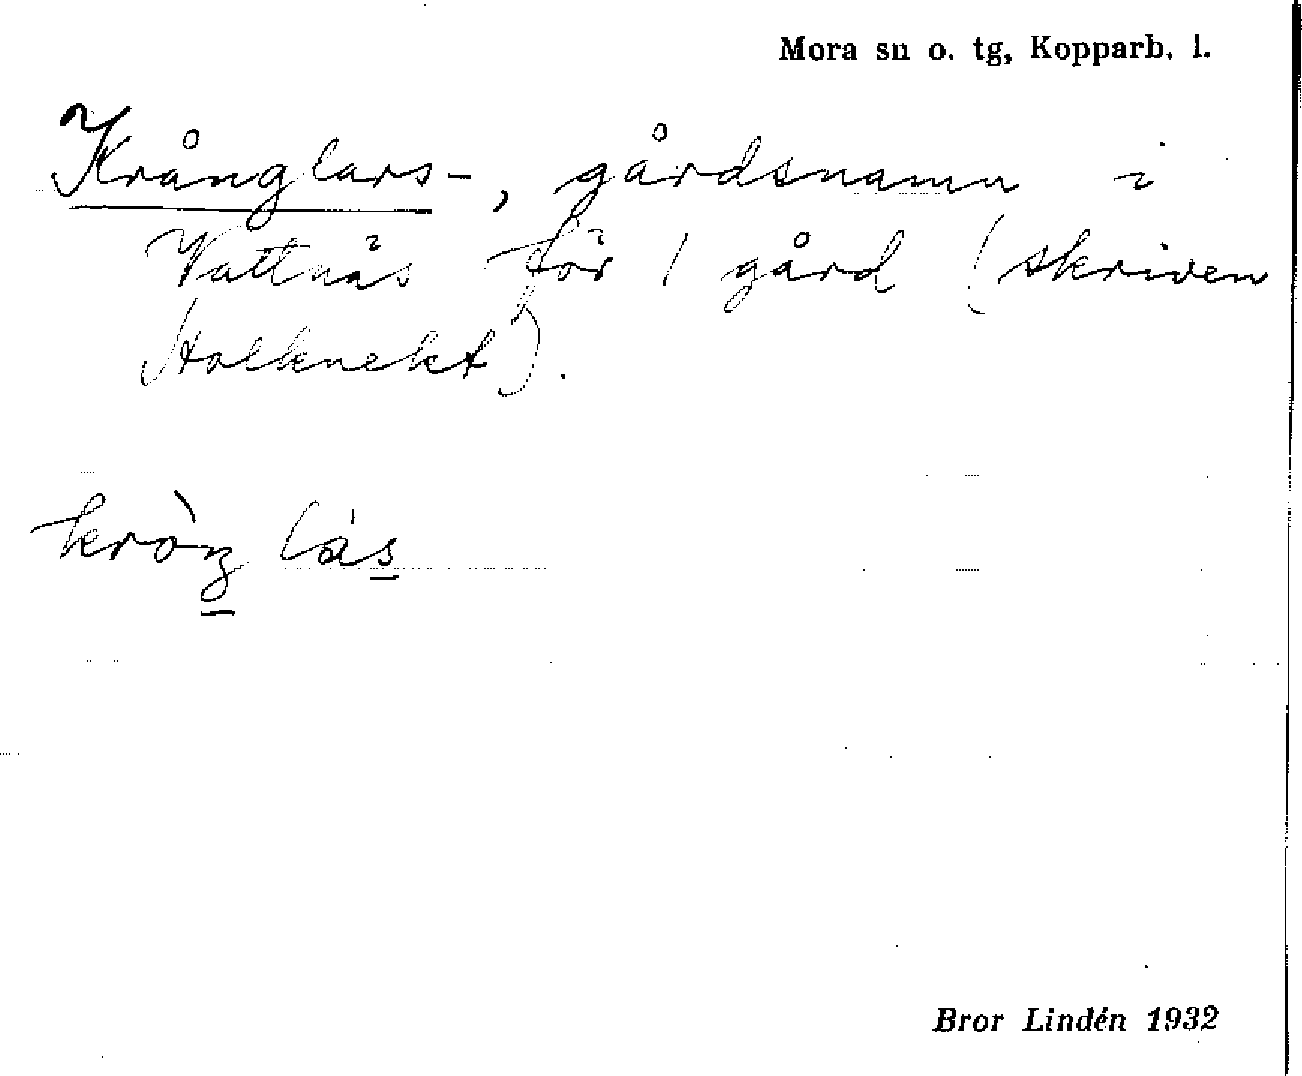 Mora sn o. tg, Kopparb. l.
Krånglars-, gårdsnamn i
Vattnäs för 1 gård (skriven
Stolknekt).
kròŋ làs
Bror Lindén 1932